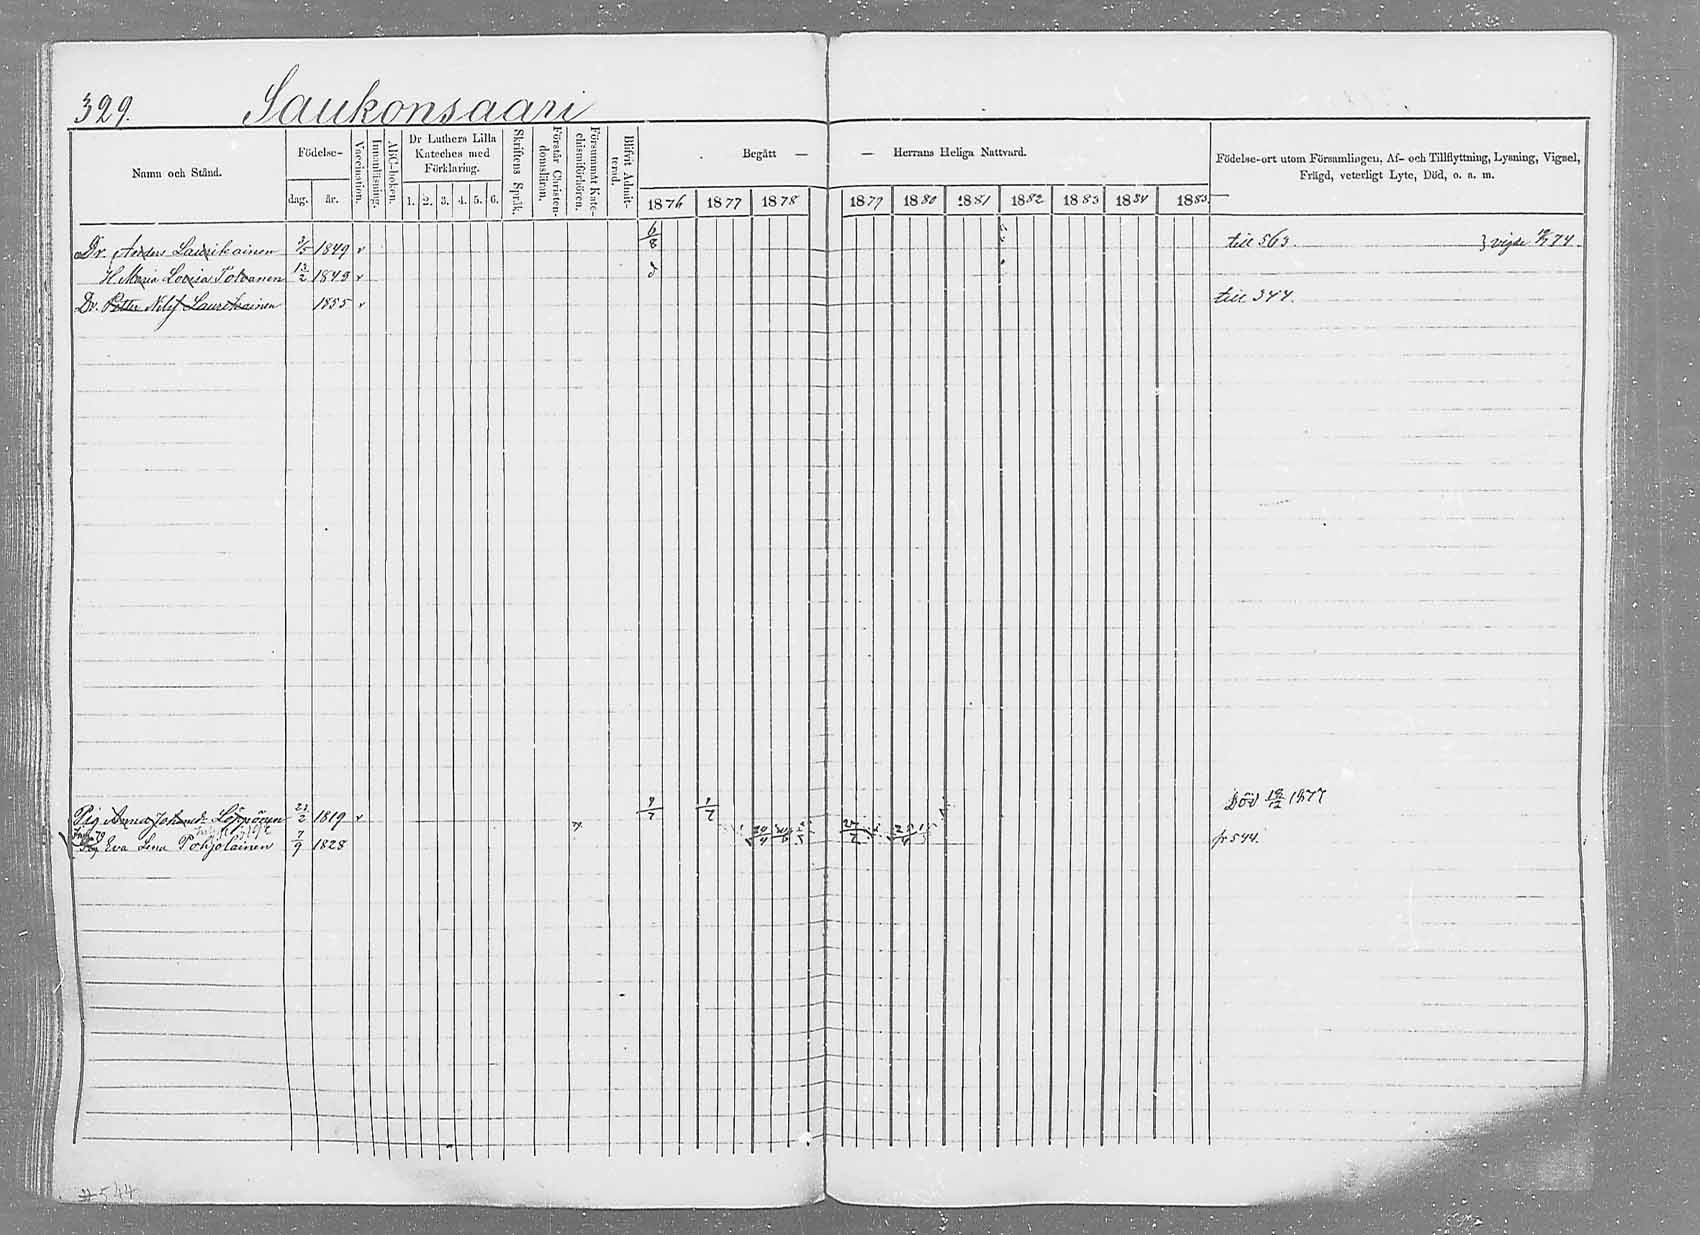 329. Saukonsaari
Namn och Stånd.
Födelse-
dag. år.
Vaccination.
Innanläsning.
ABC-boken.
Dr Luthers Lilla
Kateches med
Förklaring.
1. 2. 3. 4. 5. 6.
Skriftens Språk.
Förstår Christen-
domsläran.
Försummat Kate-
chismiförhören.
Blifvit Admit-
terad.
Begått — — Herrans Heliga Nattvard.
1876 1877 1878 1879 1880 1881 1882 1883 1884 1885
Födelse-ort utom Församlingen, Af- och Tillflyttning, Lysning, Vigsel,
Frägd, veterligt Lyte, Död, o. a. m.
Dr. Anders Laurikainen 1849 v 6/8 till 563. } vigde 74.
H. Maria Lovisa Tolvanen 12/2 1849 v
Dr. Petter Laurikainen 1855 v till 344.
Död 1877
Pig Anna Johanna 1819 v
Eva Lena Pohjolainen 7/9 1828 fr 544.
#544